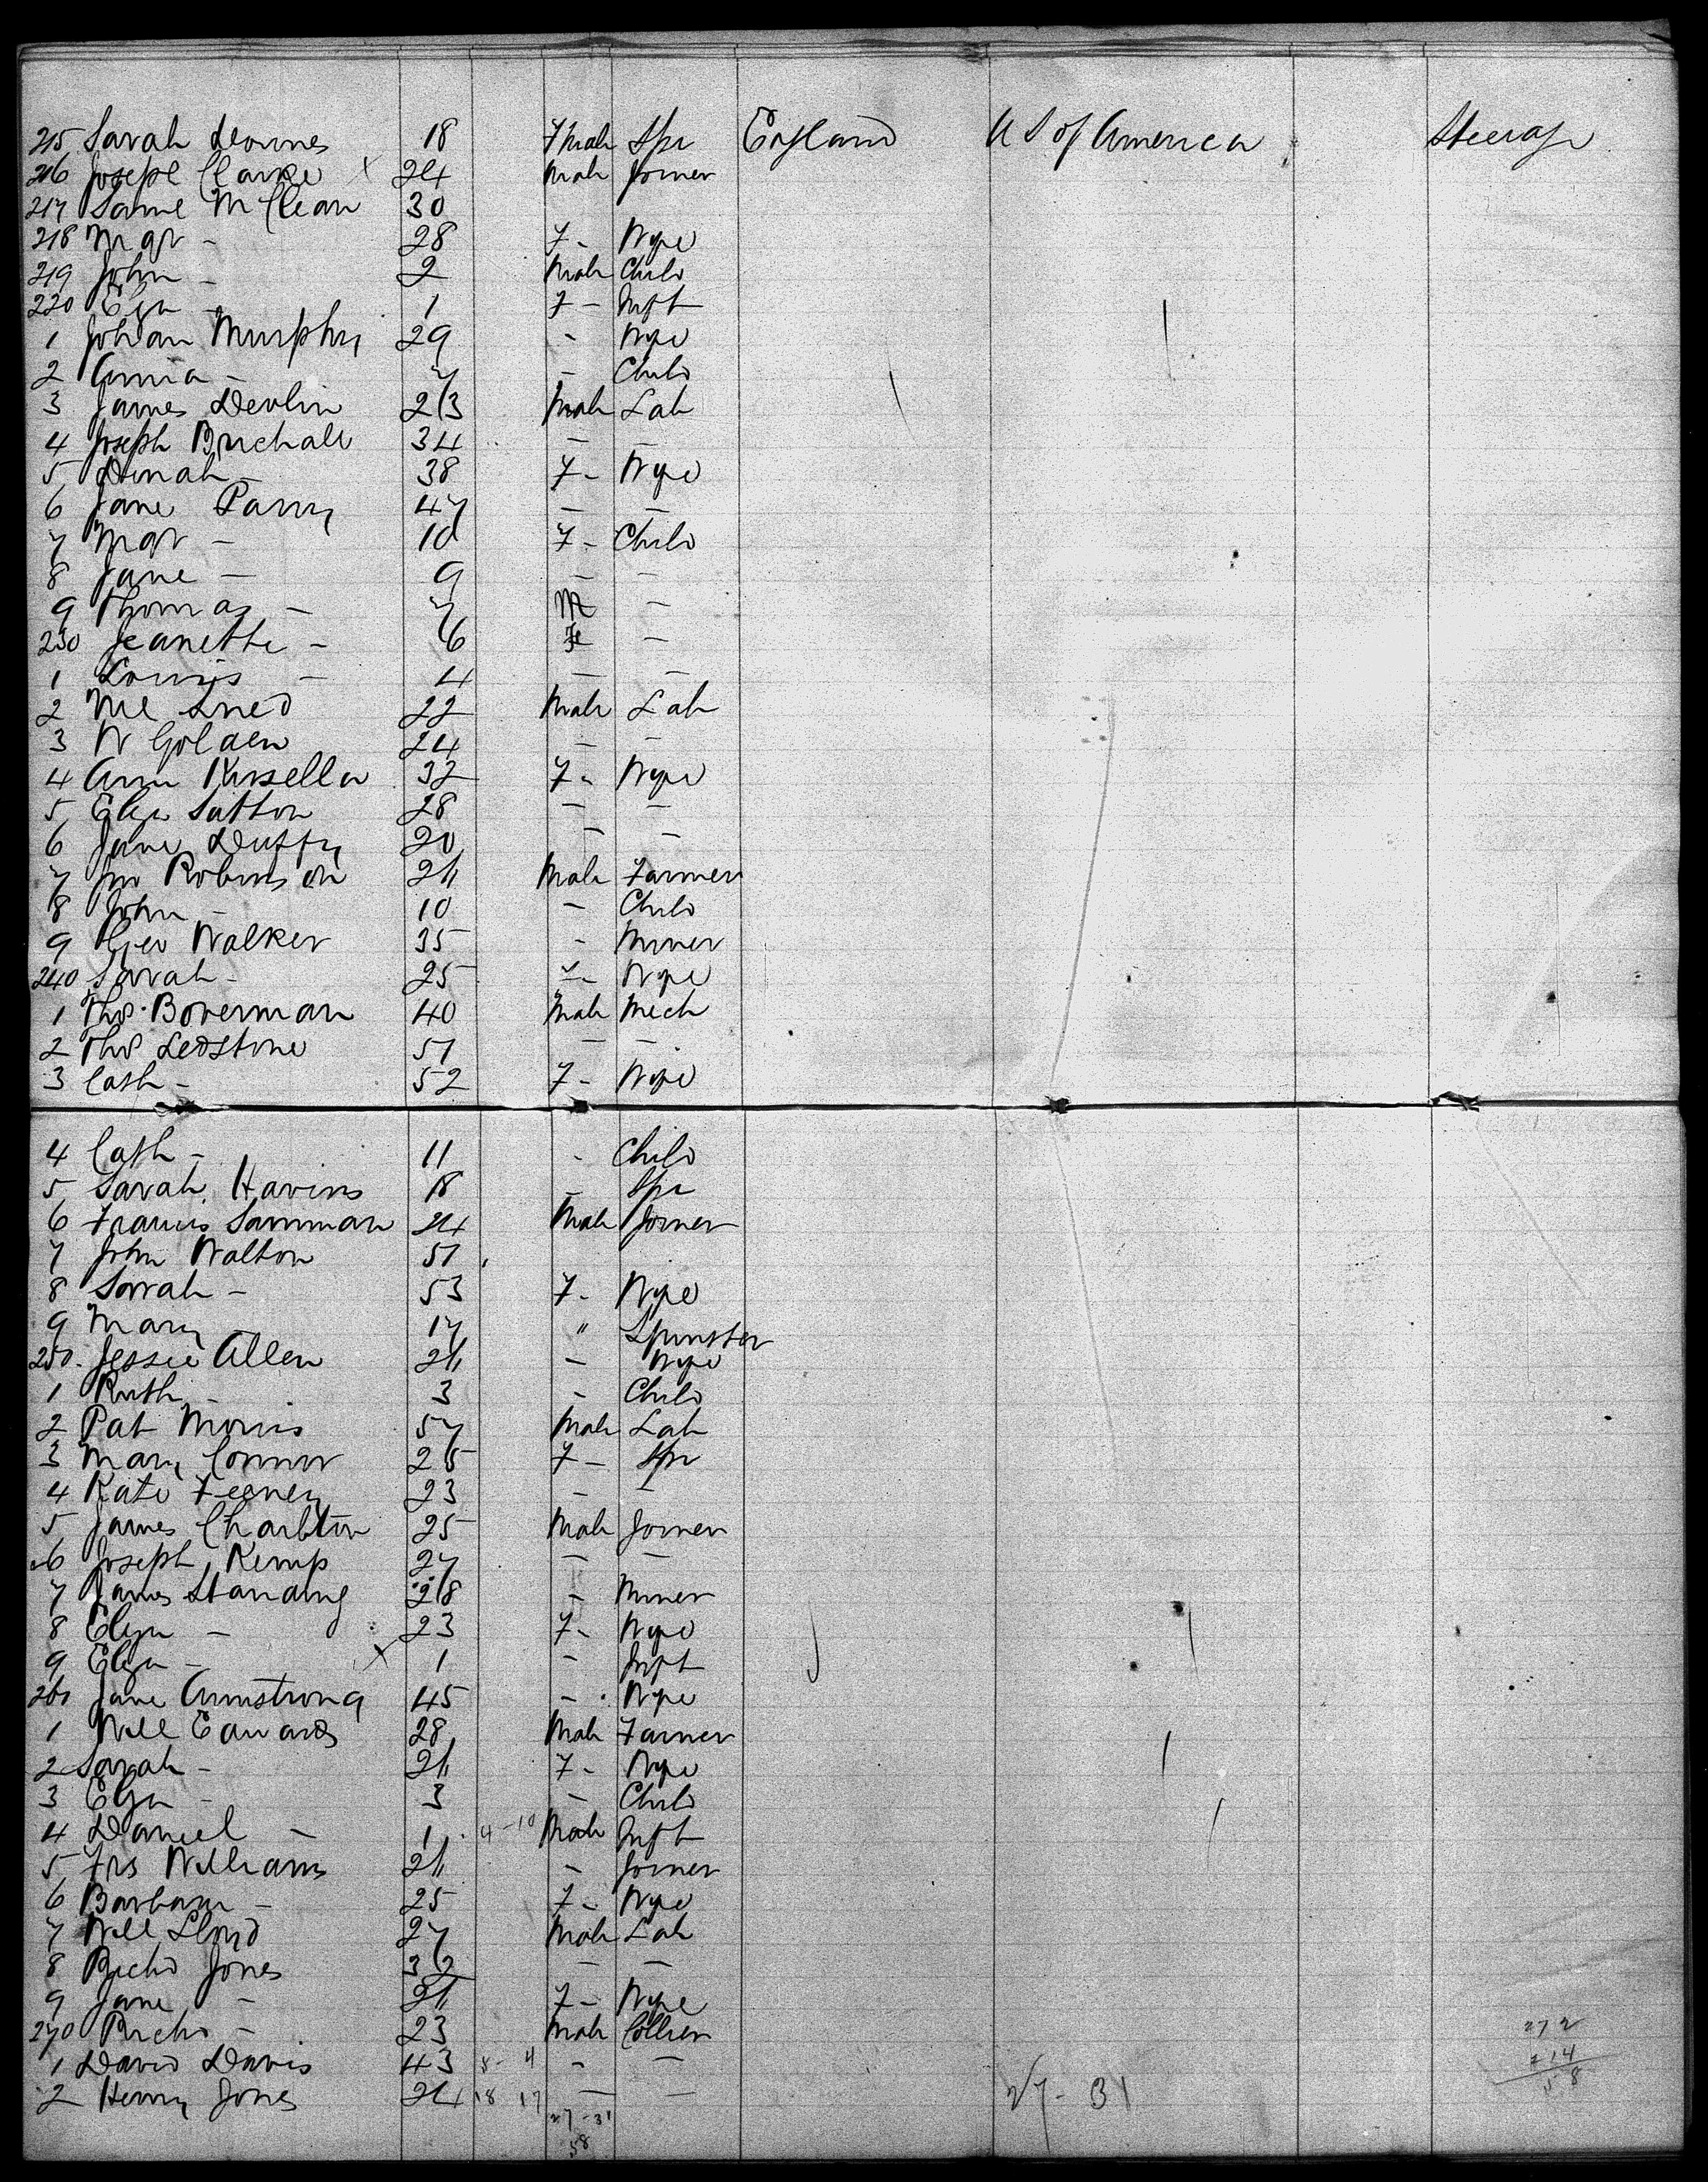 215 Sarah 18 Fmale Spr England U S of America Steerage
216 Joseph Clarke x 24 Male Joiner
217 Saml McClean 30
218 Mgr - 28 F - Wife
219 John - 2 Male Child
220 Eza - 1 F - Inft
1 Johan Murphy 29 - Wife
2 Annia - 7 - Child
3 James Devlin 23 Male Lab
4 Joseph Birchall 34 - -
5 Dinah - 38 F - Wife
6 Jane Parry 47 - -
7 Mgr - 10 F - Child
8 Jane - 9 - -
9 Thomas - 7 M -
230 Jeanette - 6 Fe -
1 Louis - 4 - -
2 22 Male Lab
3 W Golden 24 - -
4 Ann Kinsella 32 F - Wife
5 Eliza Sutton 28 - -
6 Jane Duffy 20 - -
7 Jno Robinson 26 Male Farmer
8 John - 10 - Child
9 Geo Walker 35 - Miner
240 Sarah - 25 F - Wife
1 Thos Boverman 40 Male Mech
2 Thos Ledstone 51 - -
3 Cath - 52 F - Wife
4 Cath - 11 - Child
5 Sarah Havins 18 - Spr
6 Francis Samman 24 Male Joiner
7 John Walton 51
8 Sarah - 53 F - Wife
9 Mary - 17 " Spinster
250 Jessie Allen 26 - Wife
1 Ruth - 3 - Child
2 Pat Morris 57 Male Lab
3 Mary Connor 25 F - Spr
4 Kate Feeney 23 - -
5 James Charlton 25 Male Joiner
6 Joseph Kemp 27 - -
7 James Standing 28 - Miner
8 Eliza - 23 F - Wife
9 Eliza - x 1 - Inft
260 Jane Armstrong 45 - Wife
1 Will Edwards 28 Male Farmer
2 Sarah - 26 F - Wife
3 Eza - 3 - Child
4 Daniel - 1 4 - 10 Male Inft
5 Frs Williams 26 - Joiner
6 Barbara - 25 F - Wife
7 Will Lloyd 27 Male Lab
8 Richd Jones 32 - -
9 Jane - 26 F - Wife
270 Richd - 23 Male Collier
272
1 David Davis 43 8 - 4 - -
214
2 Henry Jones 24 18 17 - - 27 - 31
58
27 - 31
58